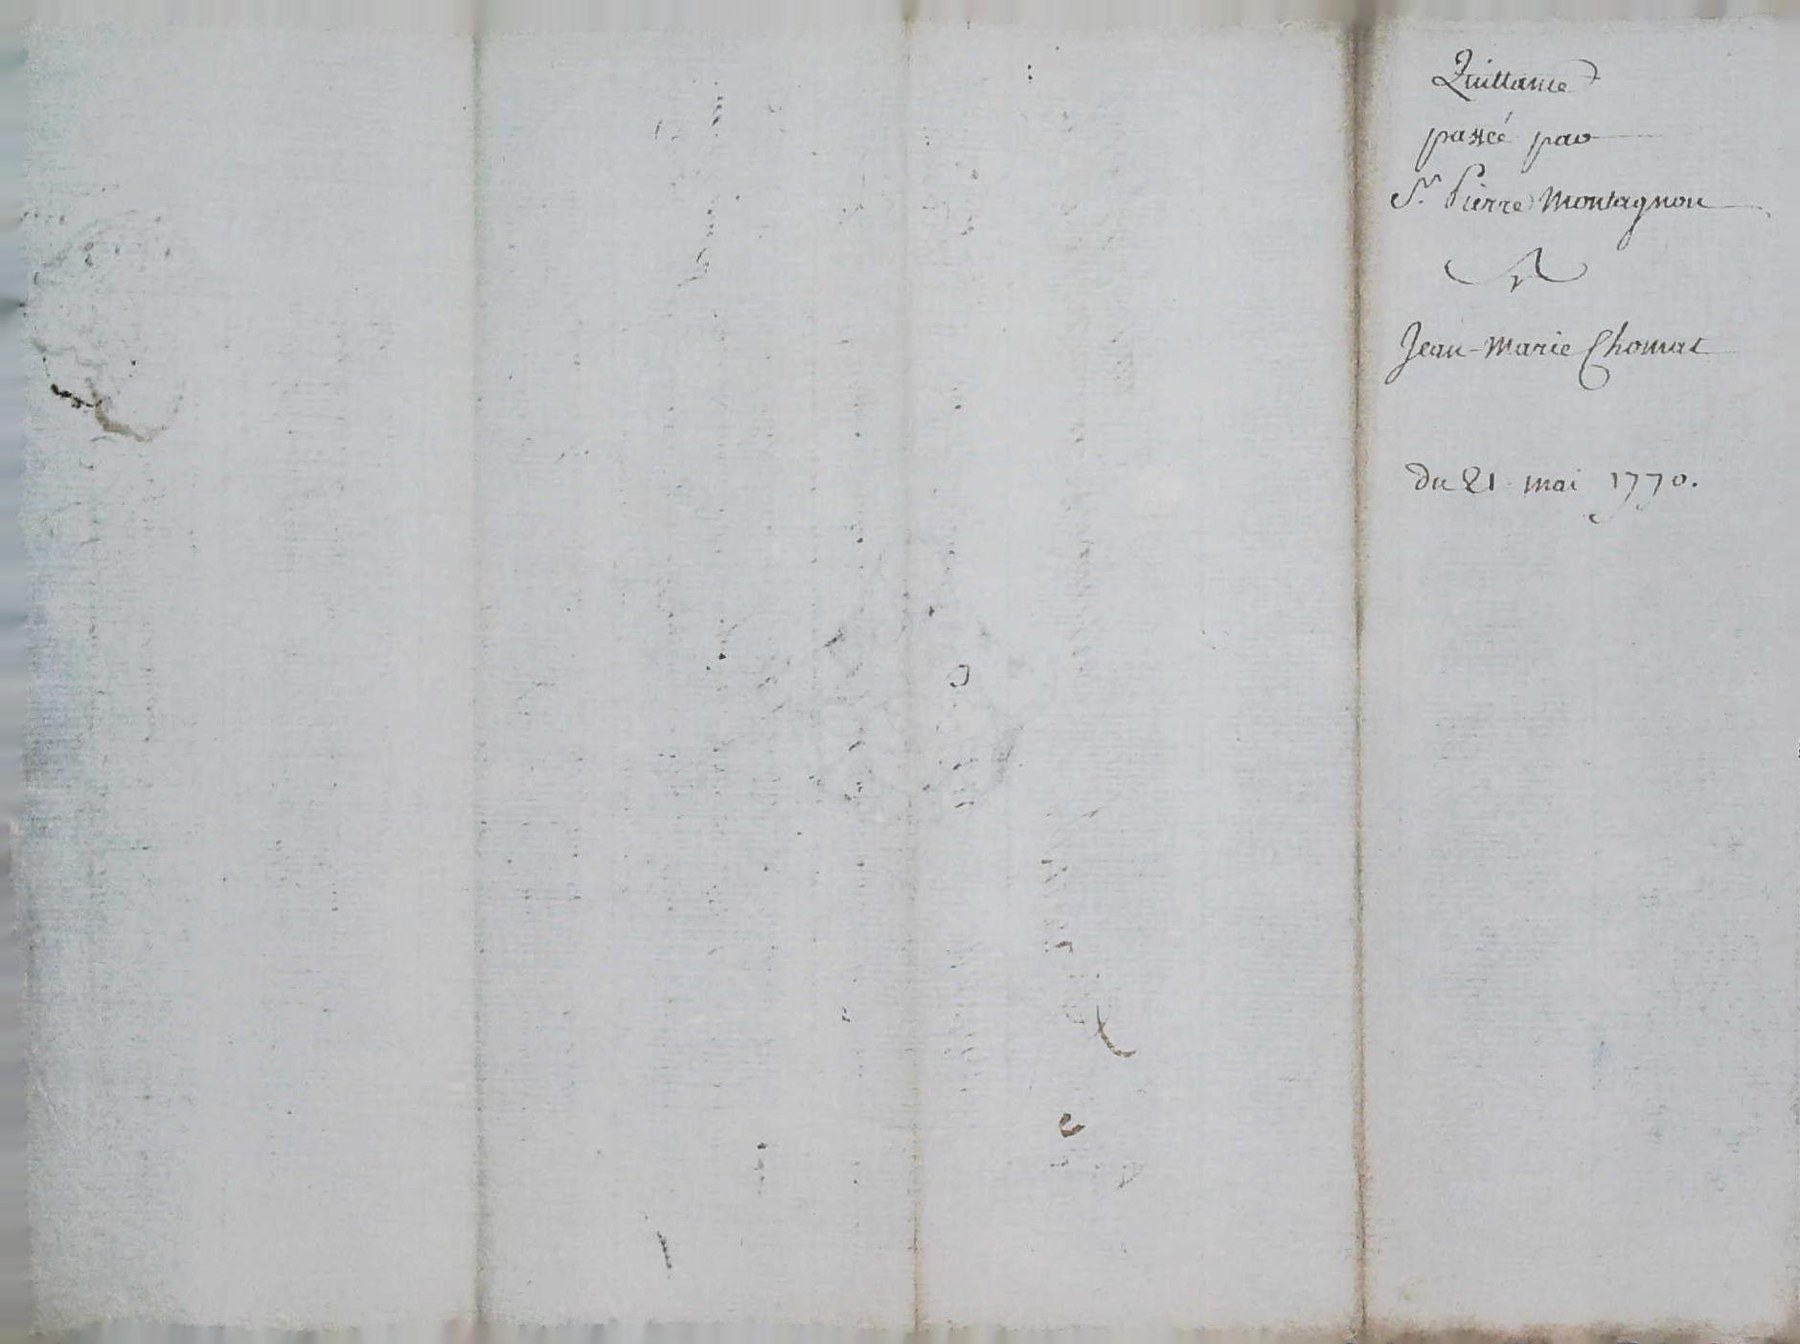 Quittance
passée par
Sr. Pierre Montagnon
a
Jean-Marie Chomat
du 21 mai 1770.